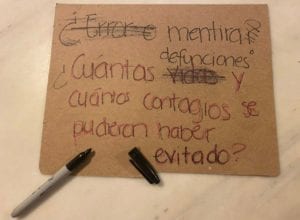 ¿Error o mentira
defunciones
¿Cuántas vidas y
cuántos contagios se
pudieron haber
evitado?